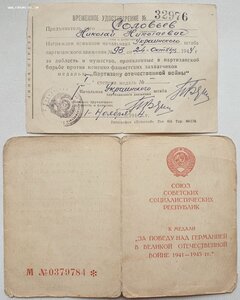 ВРЕМЕННОЕ УДОСТОВЕРЕНИЕ № 32976
Предъявитель Соловьев
Николай Николаевич
Награжден приказом начальника Украинского штаба
партизанского движения
за доблесть и мужество, проявленные в партизанской
борьбе против немецко-фашистских захватчиков
медалью „Партизану отечественной войны"
степени медаль №
Начальник Украинского
штаба
СОЮЗ
СОВЕТСКИХ
СОЦИАЛИСТИЧЕСКИХ
РЕСПУБЛИК
К МЕДАЛИ
„ЗА ПОБЕДУ НАД ГЕРМАНИЕЙ
В ВЕЛИКОЙ ОТЕЧЕСТВЕННОЙ
ВОЙНЕ 1941—1945 гг."
М № 0379784 *